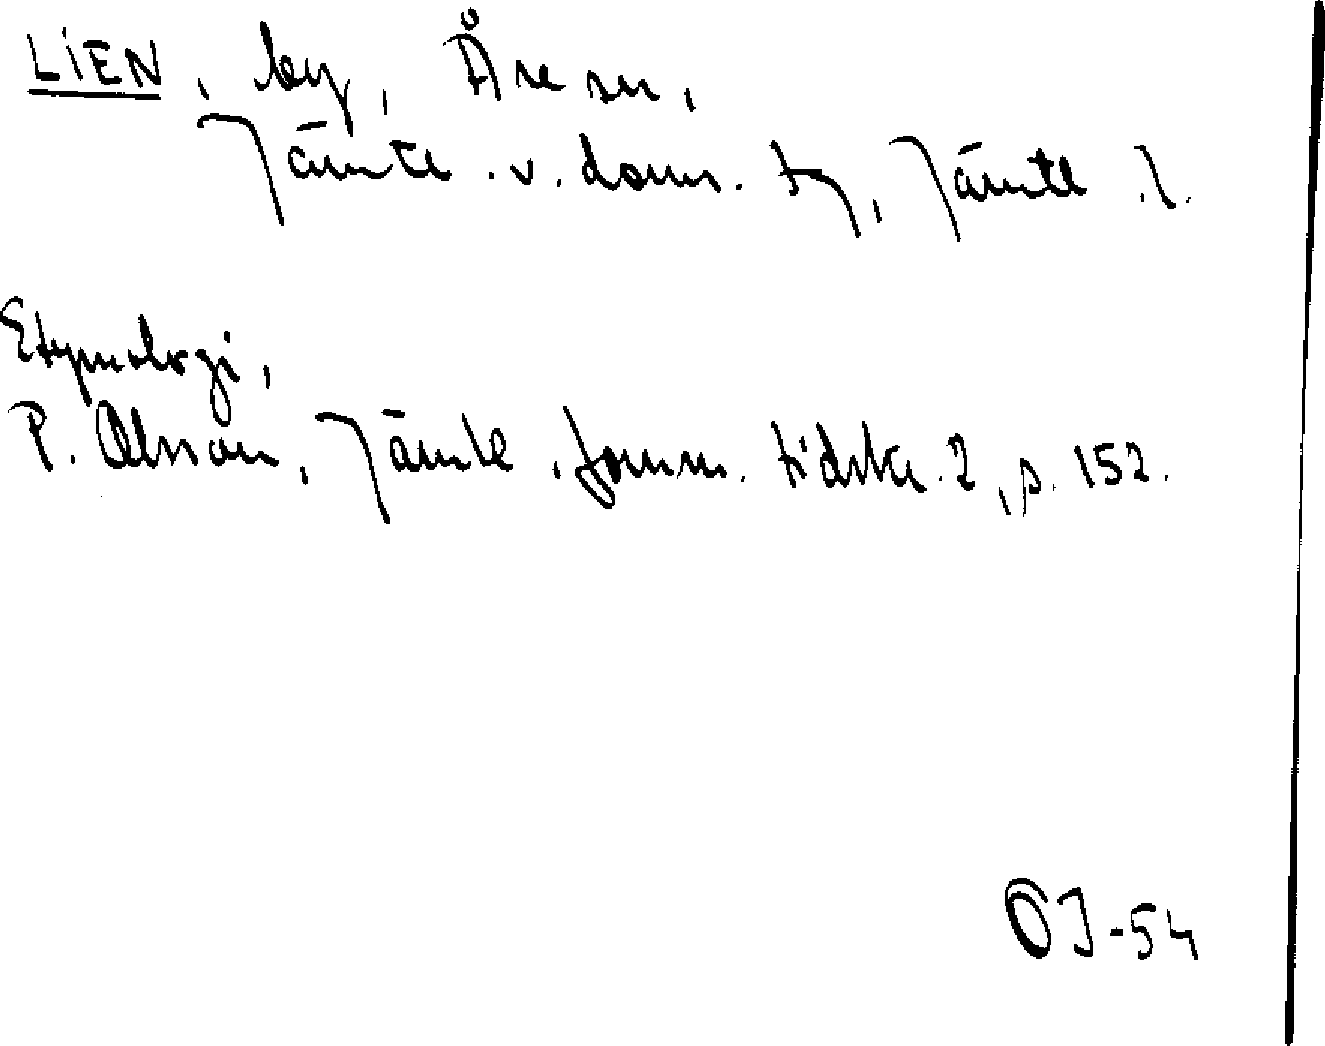 LIEN, by, Åre sn,
Jämtl. v. doms. tj, Jämtl. l.
Etymologi,
P. Olsson, Jämtl. fornm. tidskr. 2, s. 152.
OJ-54